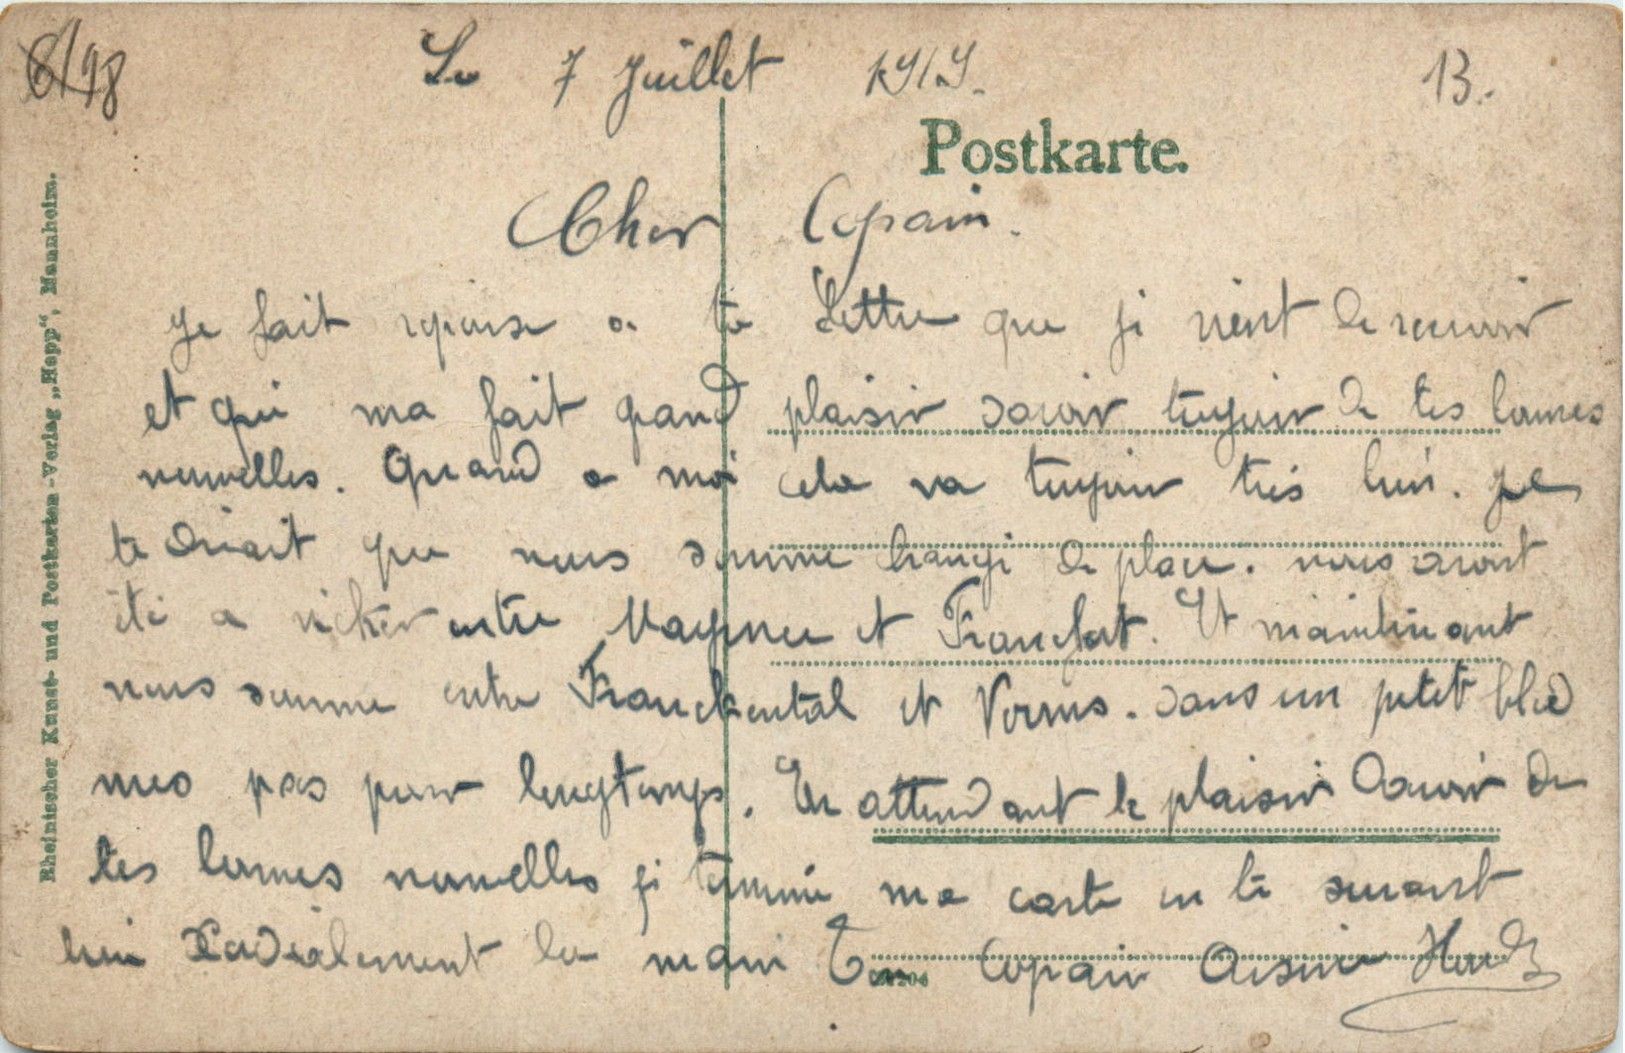 6/18
Le 7 Juillet 1919.
13.
Postkarte.
Cher Copain.
Je fait reponse a ta Lettre que je vient de recevoir
et qui ma fait grand plaisir davoir toujour de tes bonnes
nouvelles. Quand a moi cela va toujour très bien. Je
te dirait que nous somme changé de place. nous avont
été a entre Mayence et Francfort. Et maintenant
nous somme entre Franckental et Vorms. dans un petit bled
mes pas pour longtemps. En attendant le plaisir davoir de
tes bonnes nouvelles je termine ma carte en te serrant
bien Cordialement la main Ton Copain
Rheinischer Kunst- und Postkarten-Verlag „Hepp“, Mannheim.